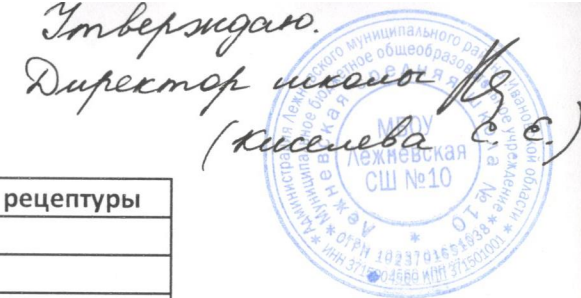 Утверждаю.
Директор школы
(Киселева Е. Е.)
Администрация Лежневского муниципального района Ивановской области
Муниципальное бюджетное общеобразовательное учреждение
Лежневская средняя школа №10
МБОУ
Лежневская
СШ №10
ОГРН 1023701651938
рецептуры